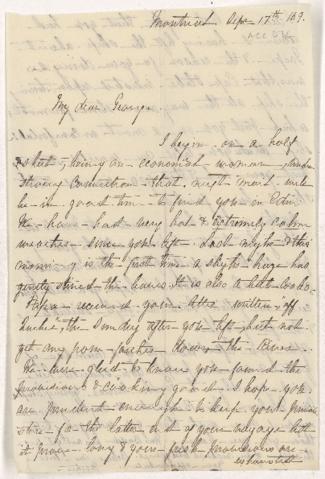 Montreal Sepr 17th 189.
ACC
My dear George.
I begin on a half
sheet, being an economical woman,
strong conviction that night mail will
be in good time to find you in
We have had very hot & extremely calm
weather since you left. Last night & this
morning is the first time a slight has
gently stirred the leaves. It is also a
Papa received your letter written off
the Sunday after you left but not
get any from further down the
We were glad to know you found the
provisions & cooking good. I hope you
are prudent enough to keep your
store for the latter end of your voyage lest
it prove long & your fresh provisions are
exhausted